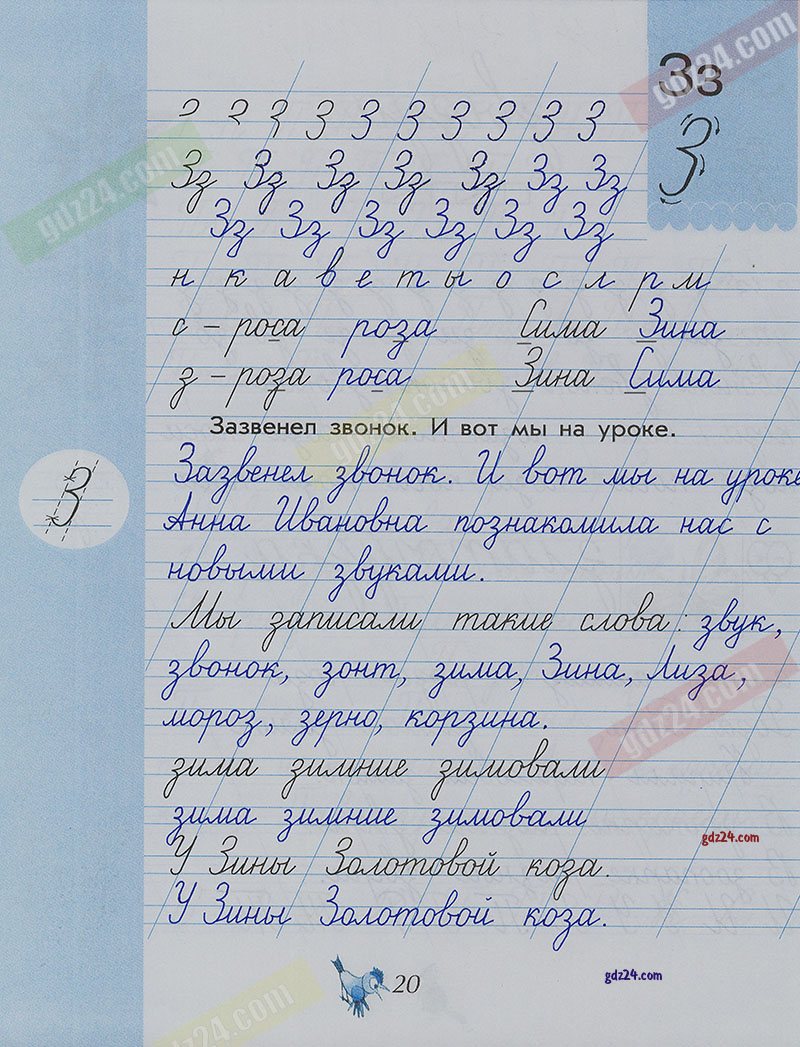 Зз
З
З З З З З З З З З З
Зз Зз Зз Зз Зз Зз Зз
Зз Зз Зз Зз Зз Зз
н к а в е т ы о с л р м
с – роса роза Сима Зина
з – роза роса Зина Сима
Зазвенел звонок. И вот мы на уроке.
З
Зазвенел звонок. И вот мы на уроке
Анна Ивановна познакомила нас с
новыми звуками.
Мы записали такие слова: звук,
звонок, зонт, зима, Зина, Лиза,
мороз, зерно, корзина.
зима зимние зимовали
зима зимние зимовали
У Зины Золотовой коза.
У Зины Золотовой коза.
20
gdz24.com
gdz24.com
gdz24.com
gdz24.com
gdz24.com
gdz24.com
gdz24.com